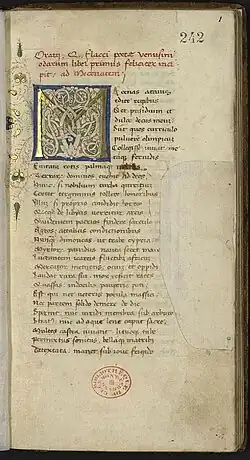 1
242
Oratij Q. Flacci poete venusini
odarum liber primus feliciter inci
pit. ad Mecenatem
Mecenas attauis
edite regibus
Et presidium et
dulce decus meum
Sunt quos curriculo
pulverem olimpicum
Collegisse iuuat me
taqȝ feruidis
Euitata rotis palmaqȝ
Terrarum dominos euehit ad deos
Hunc si nobilium turba quiritum
Certat tergeminis tollere honoribus
Illum si proprio condidit horreo
Quicqd de libicis verritur areis
Gaudentem patrios findere sarculo
Agros attalicis condictionibus
Nunqȝ dimoueas ut trabe cypria
Myrtoum pauidus nauta secet mare
Luctantem icareis fluctibus affricum
Mercator metuens ocium et oppidi
Laudat rura sui mox reficit rates
Quassas indocilis pauperiem pati
Est qui nec veteris pocula massici
Nec partem solido demere de die
Spernit nunc viridi membra sub arbuto
Stratus nunc ad aque lene caput sacre
Multos castra iuuant lituoqȝ tube
Permixtus sonitus bellaqȝ matribus
Detestata manet sub ioue frigido